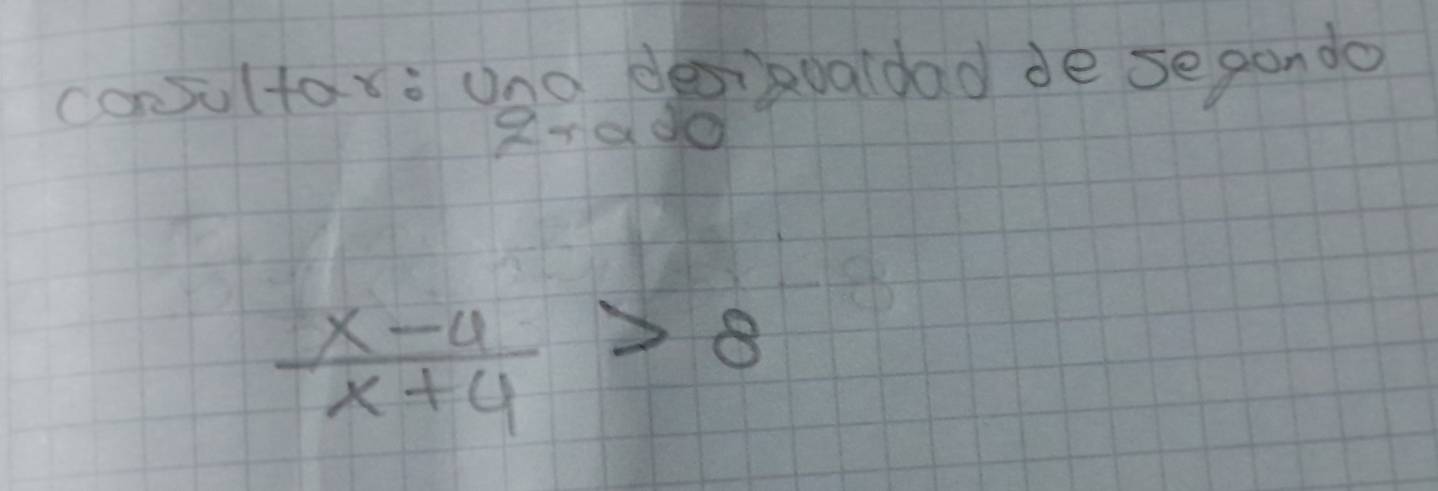 consultar: una desigualdad de segundo
grado
x-4
x+4
> 8